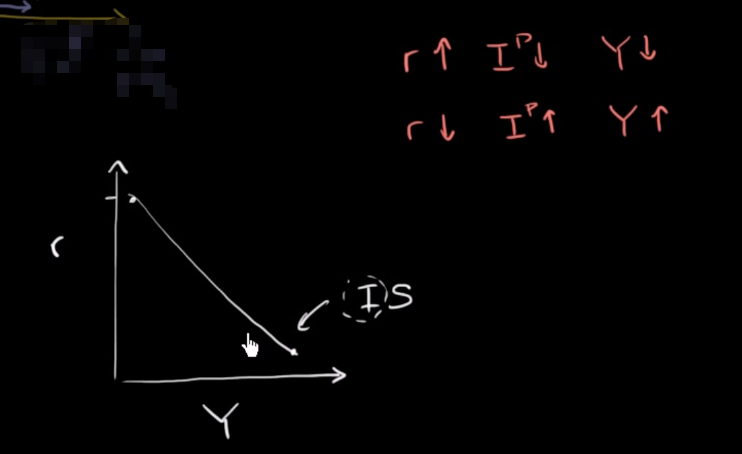 r↑ Iᵖ↓ Y↓
r↓ Iᵖ↑ Y↑
r
IS
Y